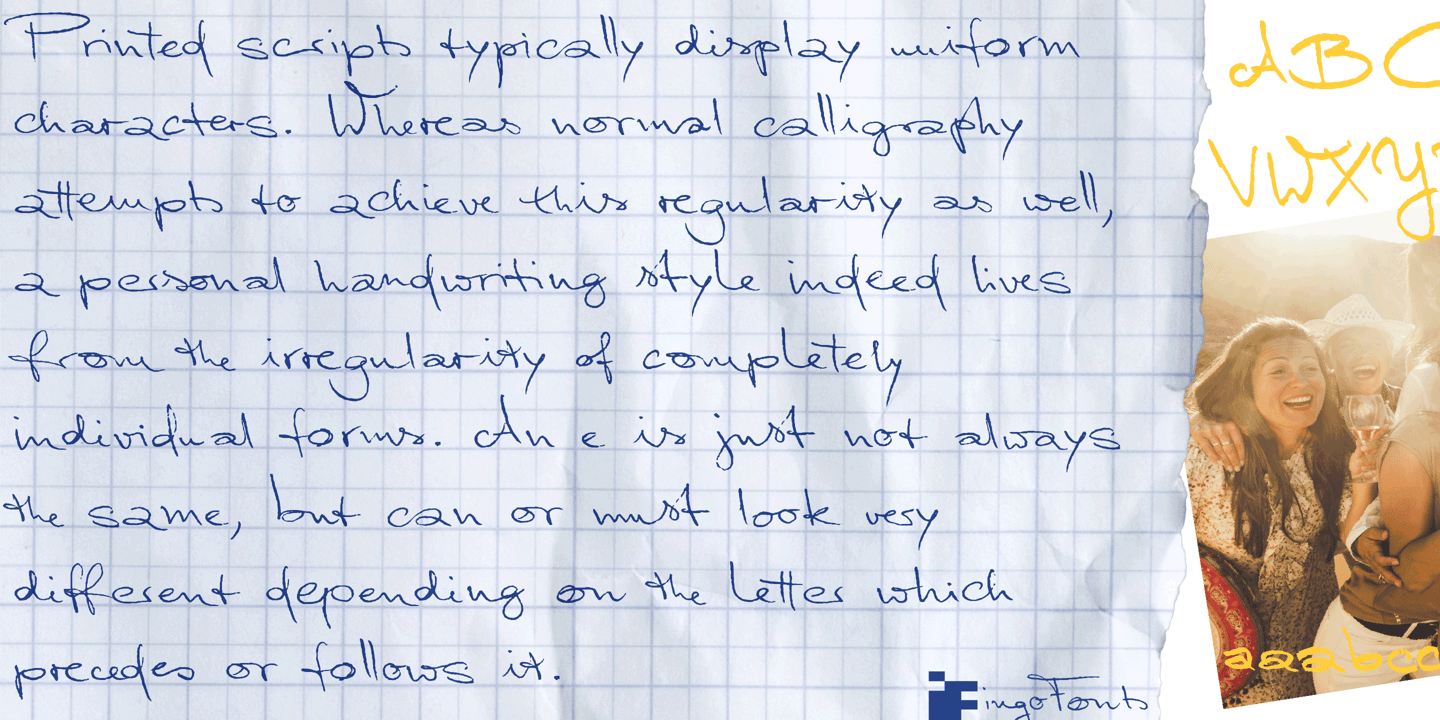 Printed scripts typically display uniform
characters. Whereas normal calligraphy
attempts to achieve this regularity as well,
a personal handwriting style indeed lives
from the irregularity of completely
individual forms. An e is just not always
the same, but can or must look very
different depending on the letter which
precedes or follows it.
FingoFonts
ABC
VWXY
aaabcc